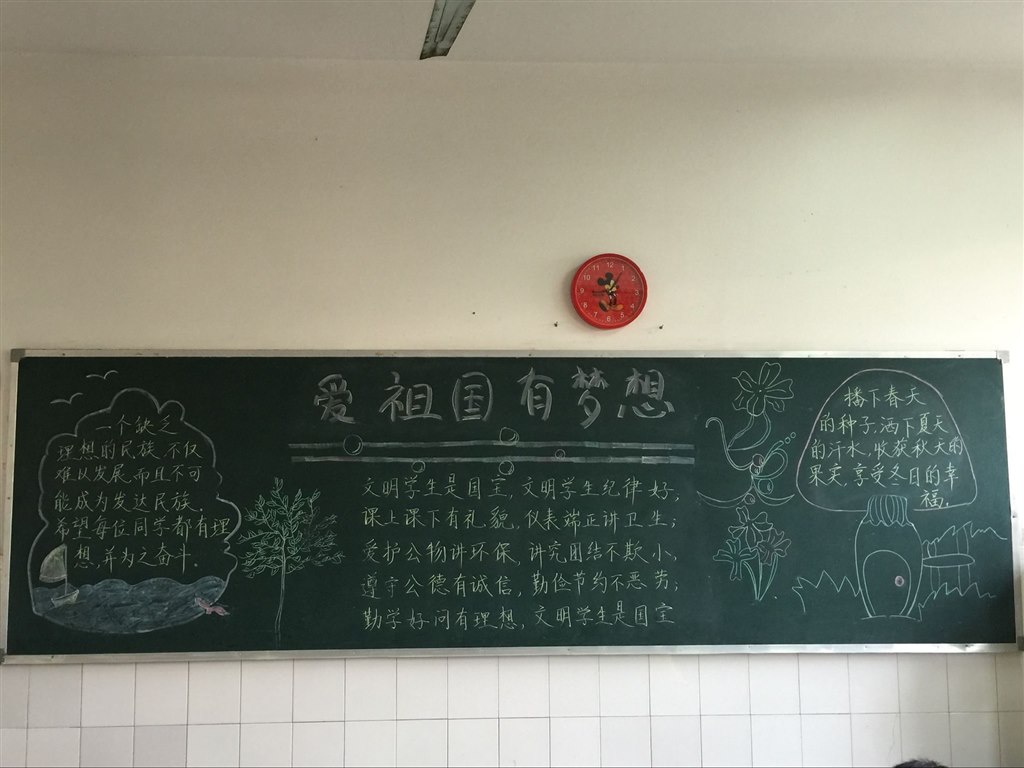 爱祖国有梦想
一个缺乏
理想的民族,不仅
难以发展,而且不可
能成为发达民族.
希望每位同学都有理
想,并为之奋斗。
文明学生是国宝,文明学生纪律好;
课上课下有礼貌,仪表端正讲卫生;
爱护公物讲环保,讲究团结不欺小;
遵守公德有诚信,勤俭节约不恶劳;
勤学好问有理想,文明学生是国宝
播下春天
的种子,洒下夏天
的汗水,收获秋天的
果实,享受冬日的幸
福,